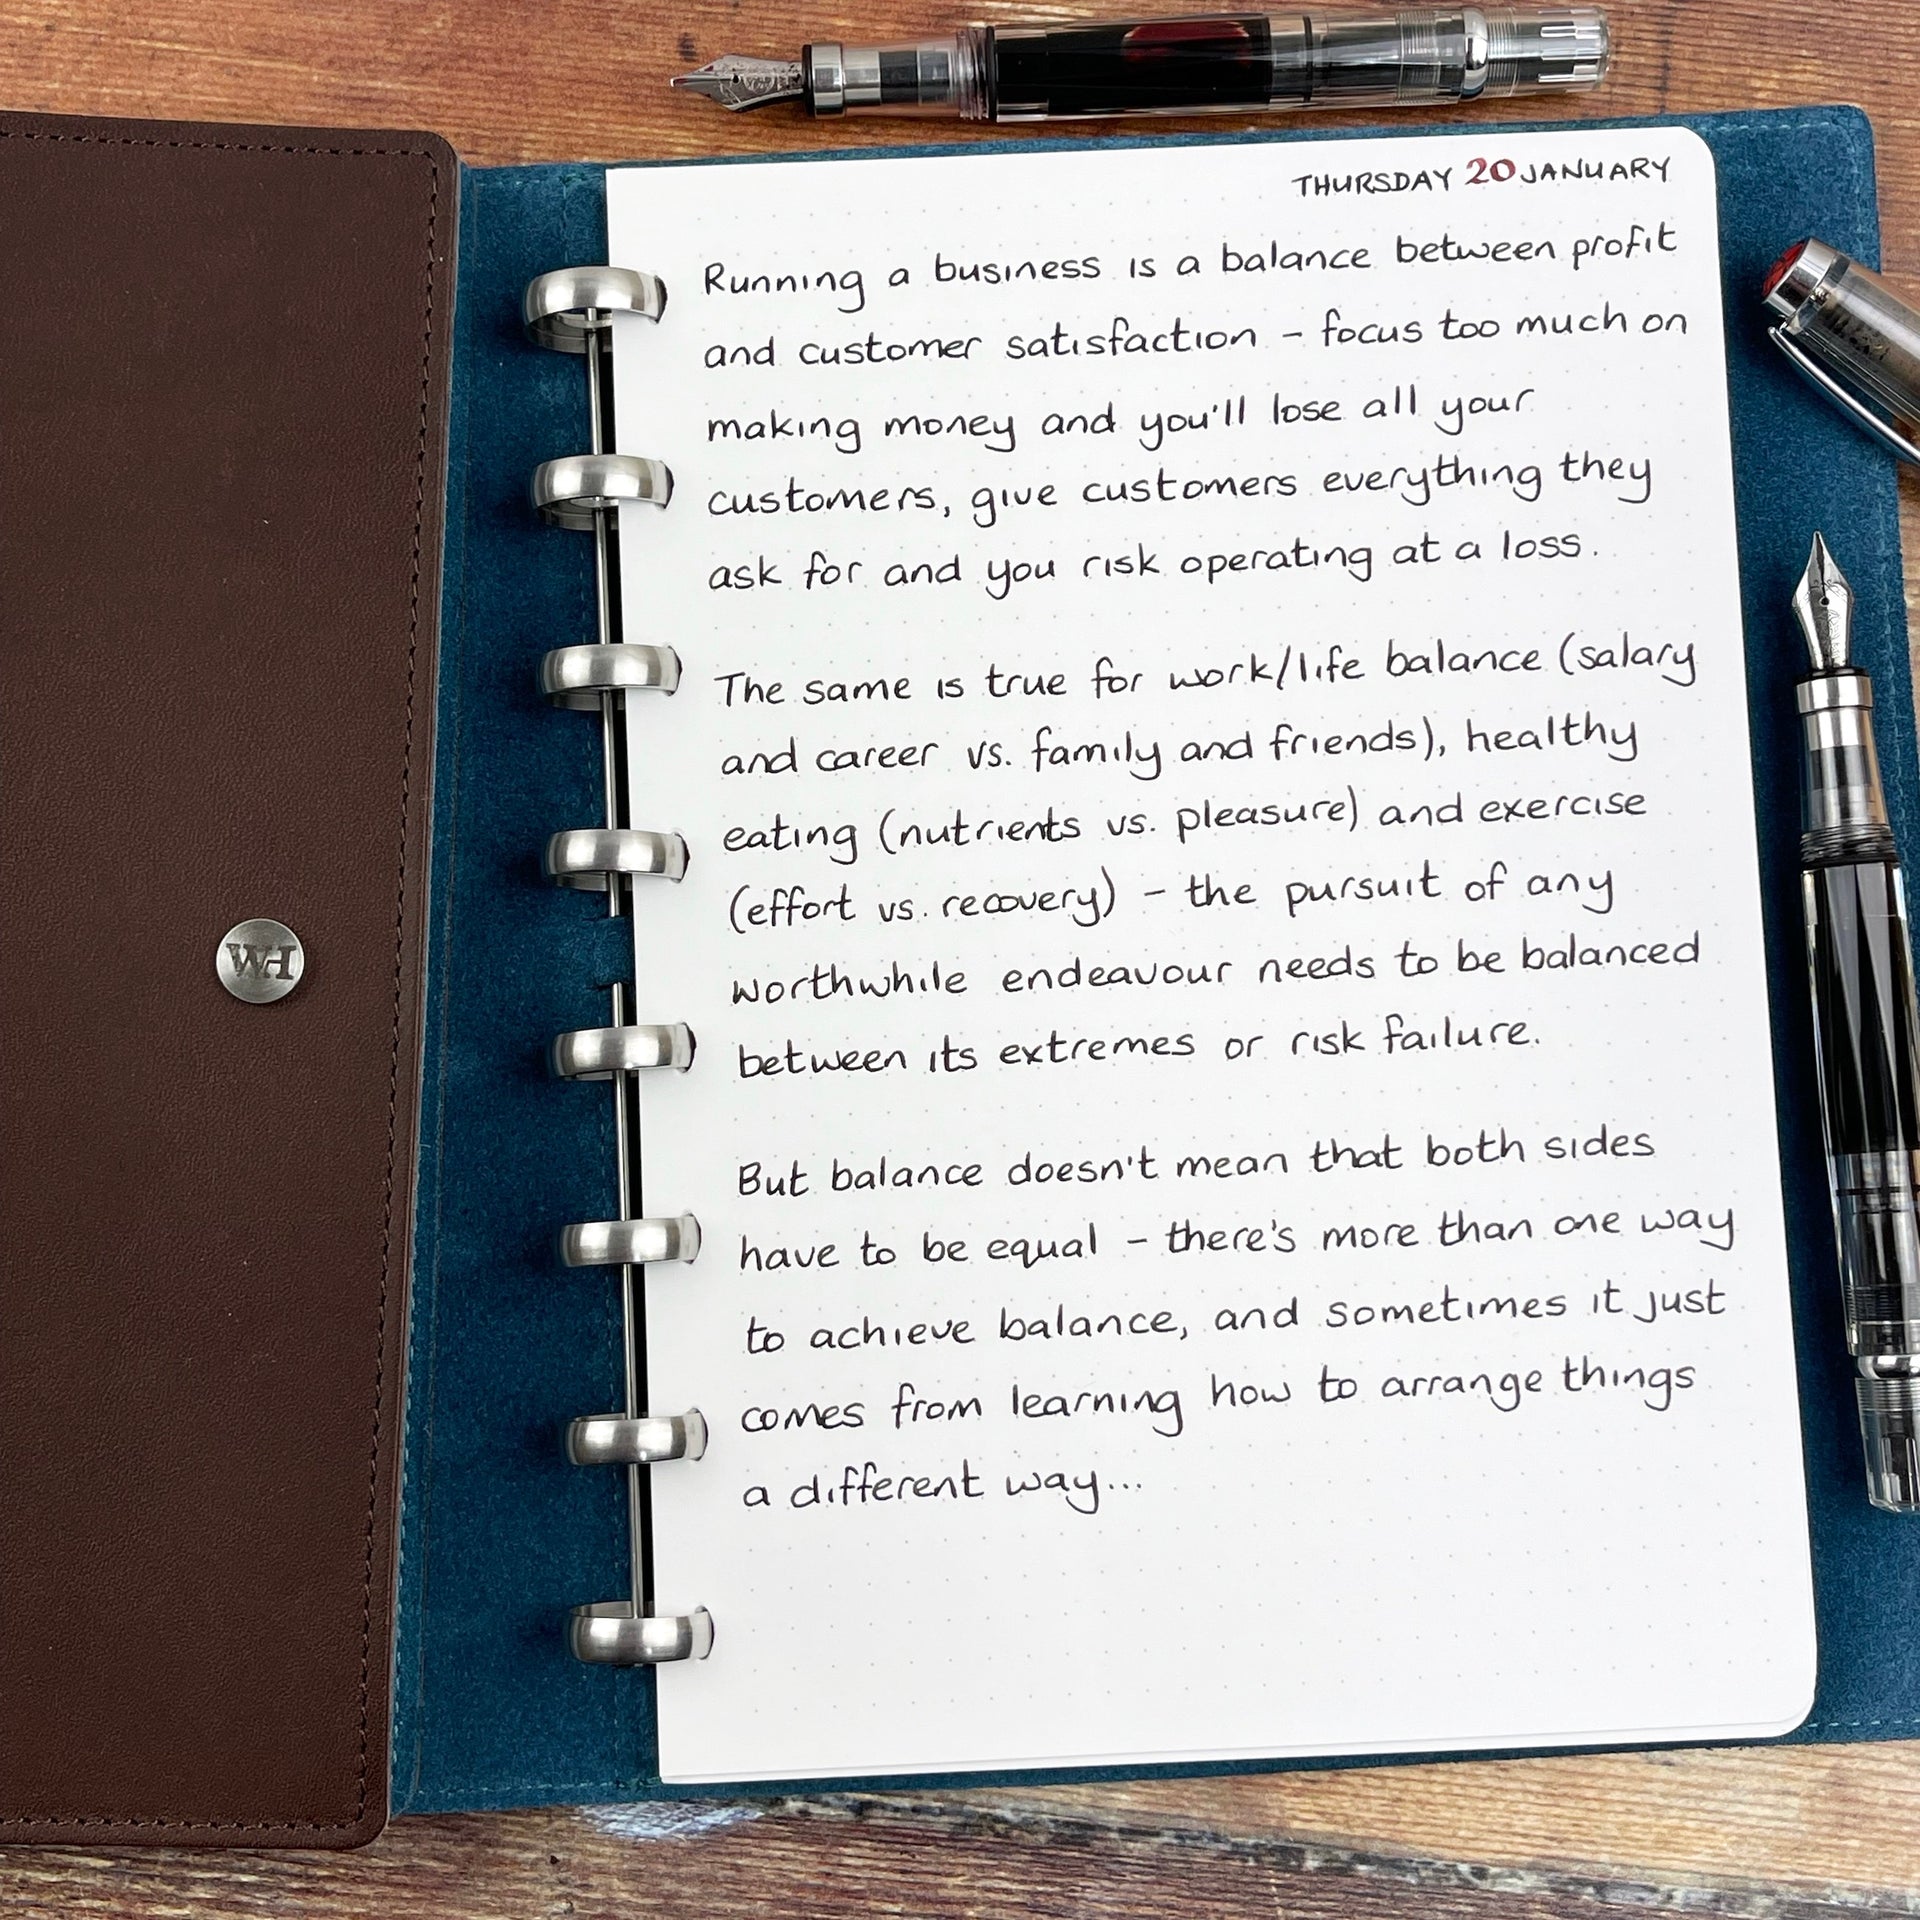 THURSDAY 20 JANUARY
Running a business is a balance between profit
and customer satisfaction - focus too much on
making money and you'll lose all your
customers, give customers everything they
ask for and you risk operating at a loss.
The same is true for work/life balance (salary
and career vs. family and friends), healthy
eating (nutrients vs. pleasure) and exercise
(effort vs. recovery) - the pursuit of any
worthwhile endeavour needs to be balanced
between its extremes or risk failure.
But balance doesn't mean that both sides
have to be equal - there's more than one way
to achieve balance, and sometimes it just
comes from learning how to arrange things
a different way...
WH